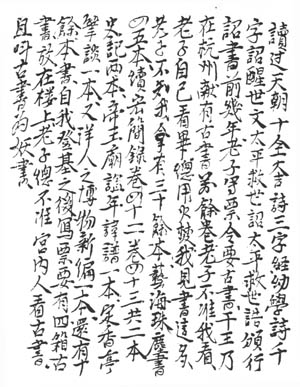 讀過天朝十全大吉詩三字經幼學詩千
字詔醒世文太平救世詔太平救世誥頒行
詔書前幾年老子寫票令要古書干王乃
在杭州献有古書万餘卷老子不准我看
老子自己看畢總用火焚我見書這多
老子不知我拿有三十餘本藝海珠塵書
四五本續宏簡錄卷四十二卷四十三共二本
史記兩本帝王廟謚年諱譜一本定香亭
筆談一本又洋人之博物新編一本還有十
餘本書自我登基之後寫票要有四箱古
書放在楼上老子總不准宮內人看古書
且叫古書為妖書